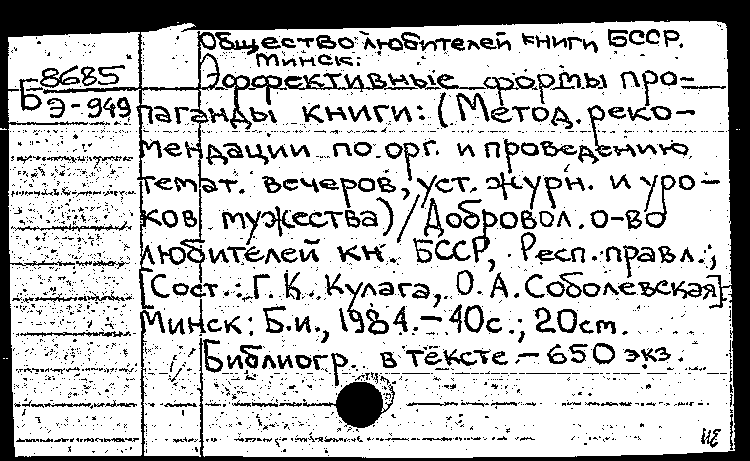 Общество любителей книги БССР.
Минск.
Б 8685
Э-949
Эффективные формы про-
паганды книги: (Метод. реко-
мендации по орг. и проведению
темат. вечеров, уст. журн. и уро-
ков мужества) / Добровол. о-во
любителей кн. БССР, Респ. правл.;
[Сост.: Г. К. Кулага, О. А. Соболевская].
Минск: Б.и., 1984. – 40с.; 20см.
Библиогр. в тексте – 650 экз.